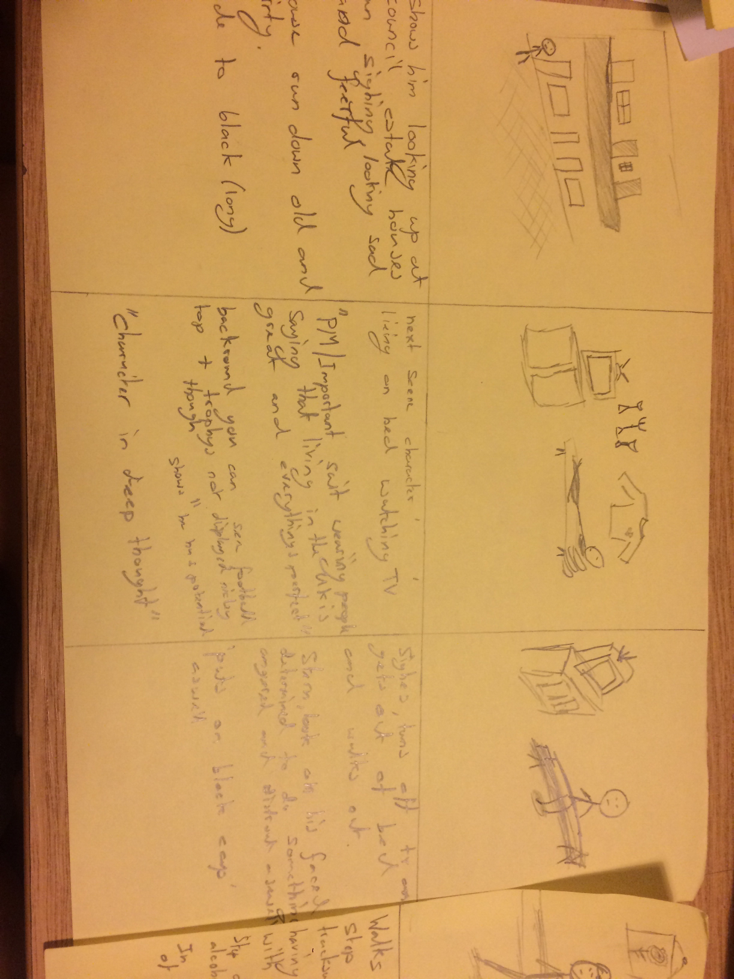 shows him looking up at
council estate houses
sighing, looking sad
and
run down old and
to black (long)
next scene character
on bed watching TV
"PM/Important suit wearing people
saying that living in the UK is
great and everythings perfect"
background you can see football
top + trophys not displayed nicely
though shows "he has potential"
"Character in deep thought"
Sighes, turns off tv
gets out of bed
and walks out.
Stern look on his face
determined to do something having
angered and
puts on black cap,
aswell
Walks
step
In
of